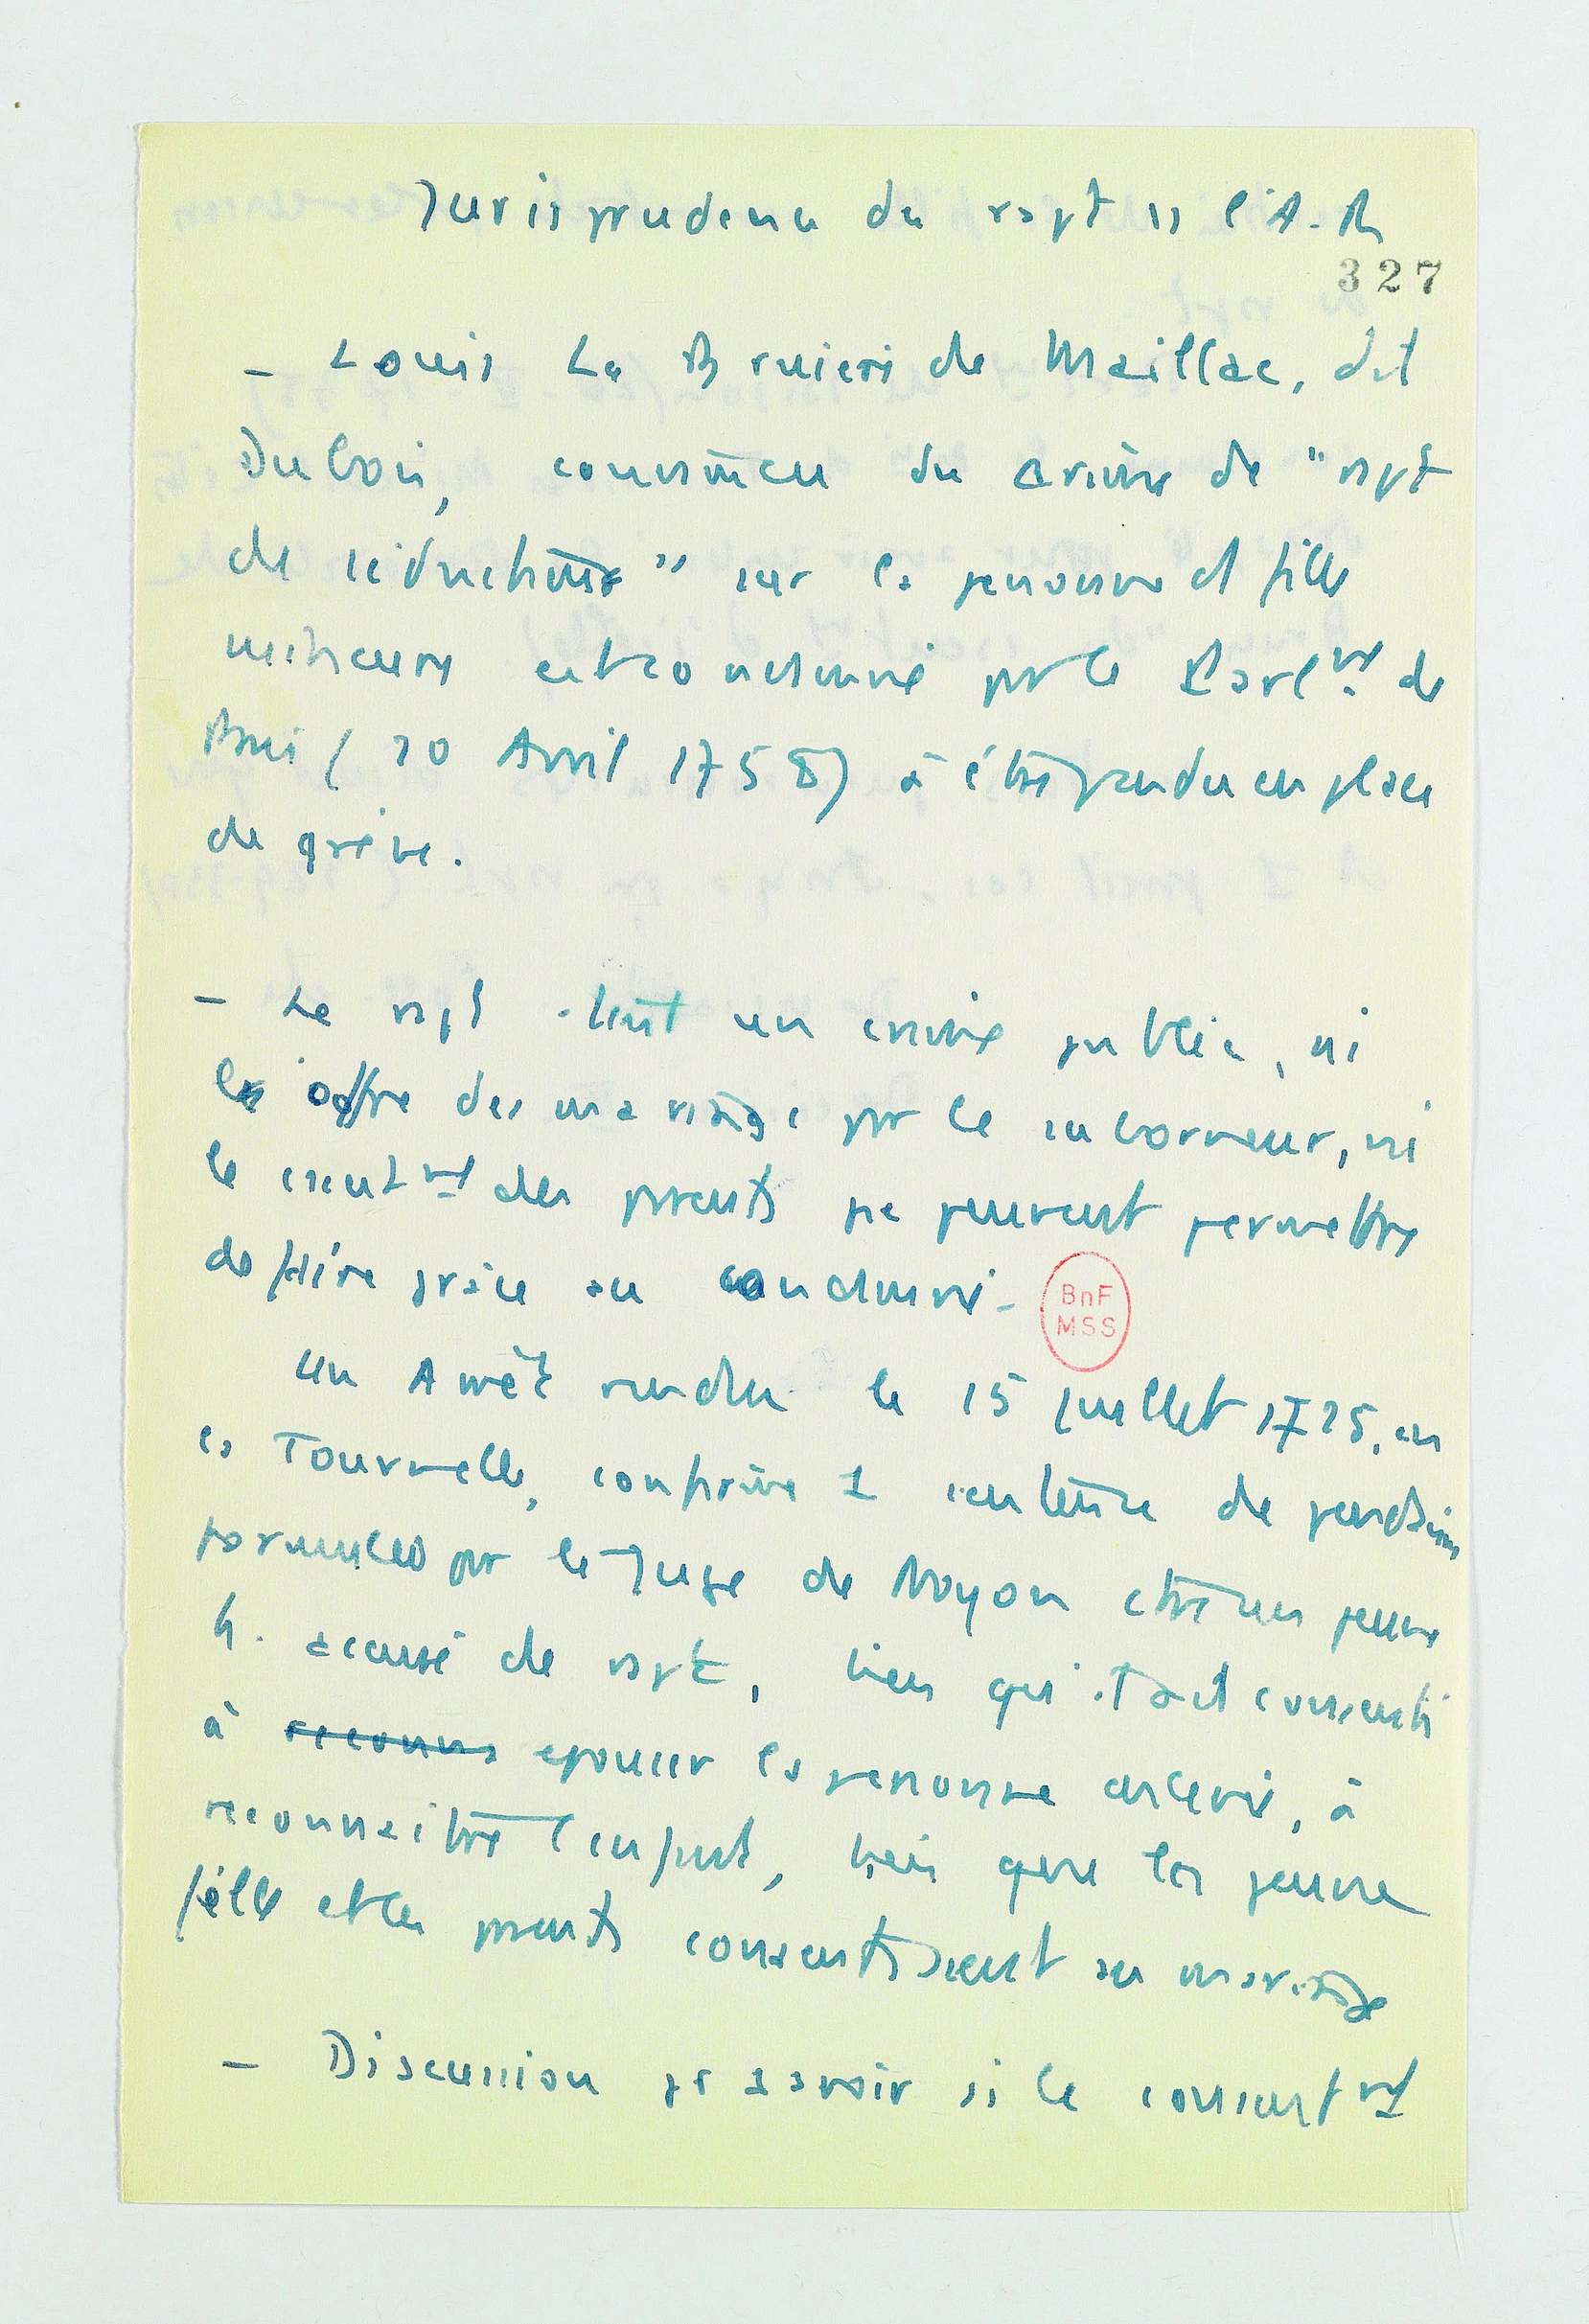 Jurisprudence du rapt ds l'A.R
327
- Louis La Bruiere de Maillac, dit
Dubois, convaincu du crime de "rapt
de séduction" sur la personne d'1 fille
mineure est condamné par le Parlmt de
Paris (20 Avril 1758) à être pendu en place
de grève.
- Le rapt étant un crime public, ni
l'offre des mariage par le suborneur, ni
le csentmt des parents ne peuvent permettre
de faire grâce au condamné.
BnF
MSS
Un Arrêt rendu le 15 juillet 1725, en
la Tournelle, confirme 1 sentence de pendaison
formulée par le Juge de Noyon ctre un jeune
h. accusé de rapt, bien qu'il ait consenti
à reconna epouser la personne enlevée, à
reconnaitre l'enfant, bien que la jeune
fille et les parents consentissent au mariage
- Discussion pr savoir si le consentmt